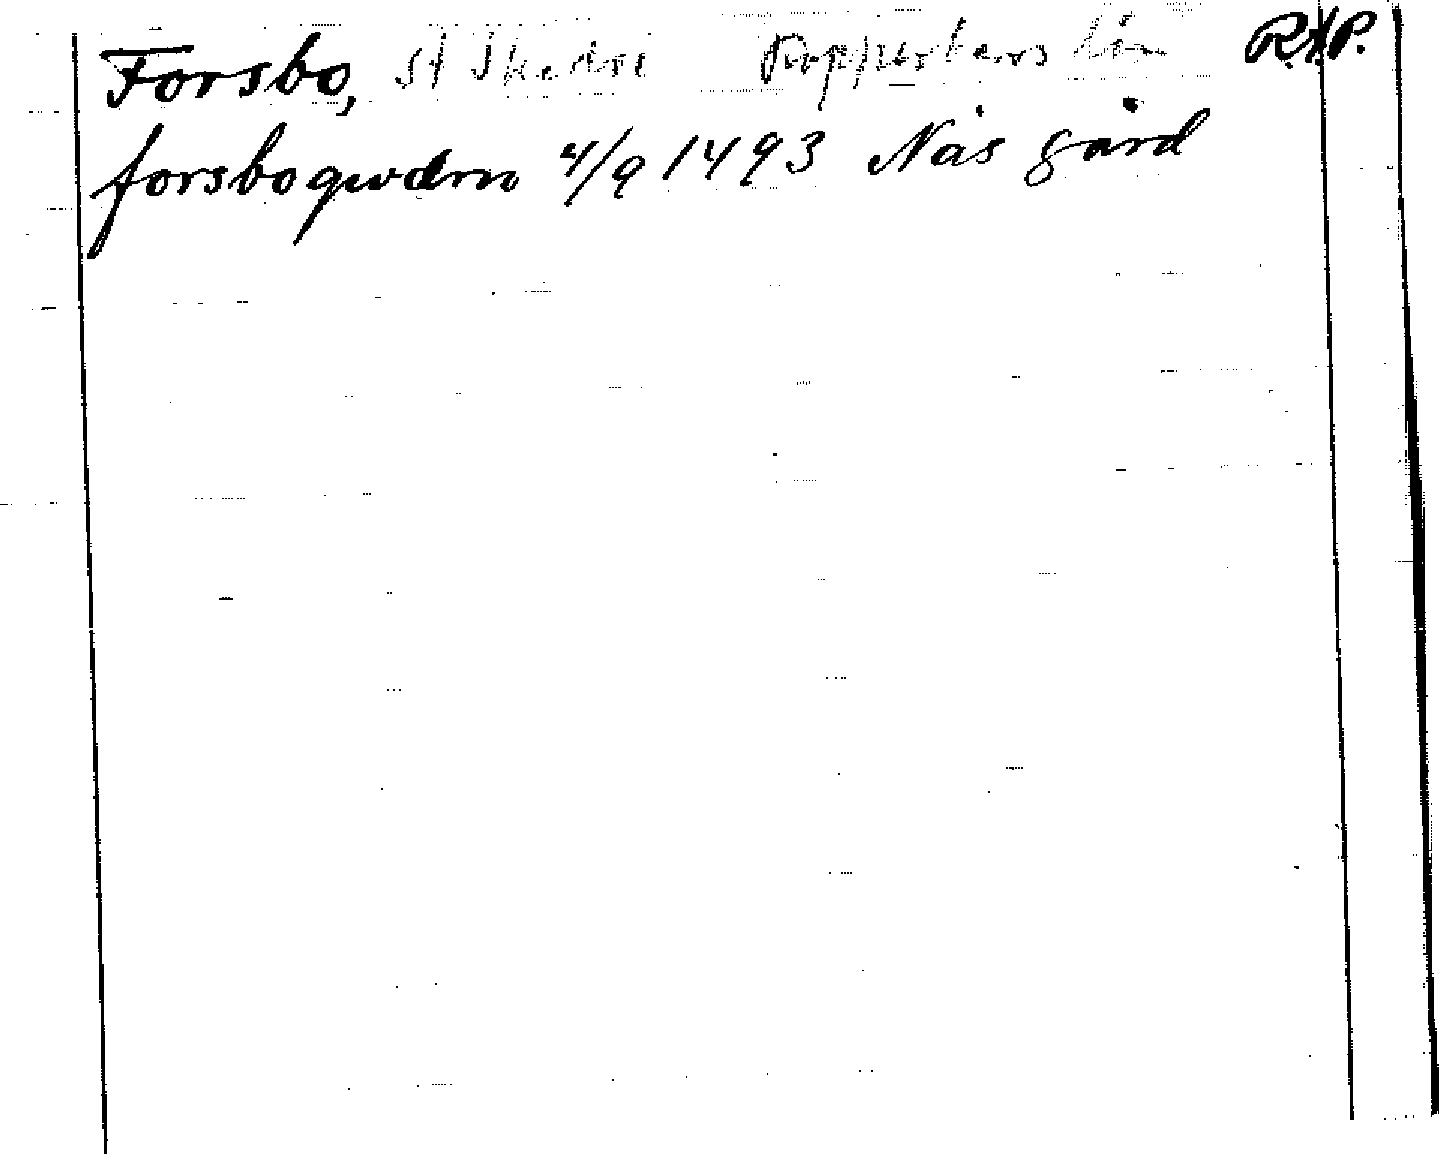 Forsbo, St Skedvi Kopparbergs län R.A.P.
forsboqwærn 4/9 1493 Näs gård